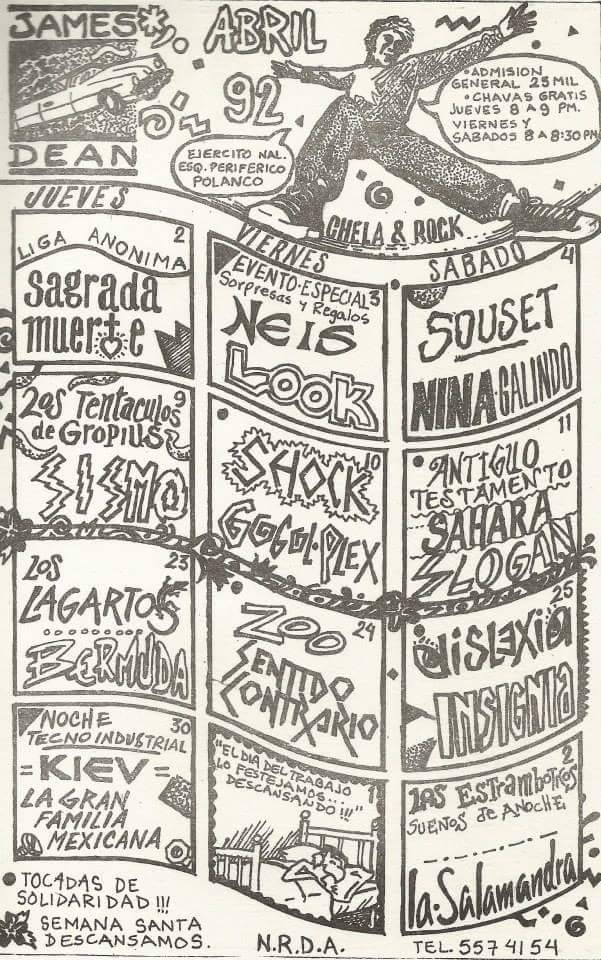 JAMES
DEAN
ABRIL
92
EJERCITO NAL.
ESQ. PERIFERICO
POLANCO
• ADMISION
GENERAL 25 MIL
• CHAVAS GRATIS
JUEVES 8 A 9 PM.
VIERNES Y
SABADOS 8 A 8:30 PM
CHELA & ROCK
JUEVES
2
LIGA ANONIMA
sagrada
muerte
9
Los Tentaculos
de Gropius
SISMO
23
LOS
LAGARTOS
BERMUDA
30
NOCHE
TECNO INDUSTRIAL
=KIEV=
LA GRAN
FAMILIA
MEXICANA
VIERNES
EVENTO·ESPECIAL 3
Sorpresas y Regalos
NEIS
LOOK
10
SHOCK
GOGOL·PLEX
24
ZOO
SENTIDO
CONTRARIO
1
"EL DIA DEL TRABAJO
LO FESTEJAMOS...
DESCANSANDO!!!"
SABADO
4
SOUSET
NINA·GALINDO
11
ANTIGUO
TESTAMENTO
SAHARA
SLOGAN
25
dislexia
INSIGNIA
2
Los Estramboticos
SUEÑOS de ANOCHE
la·Salamandra
• TOCADAS DE
SOLIDARIDAD !!!
SEMANA SANTA
DESCANSAMOS.
N.R.D.A.
TEL. 557 41 54